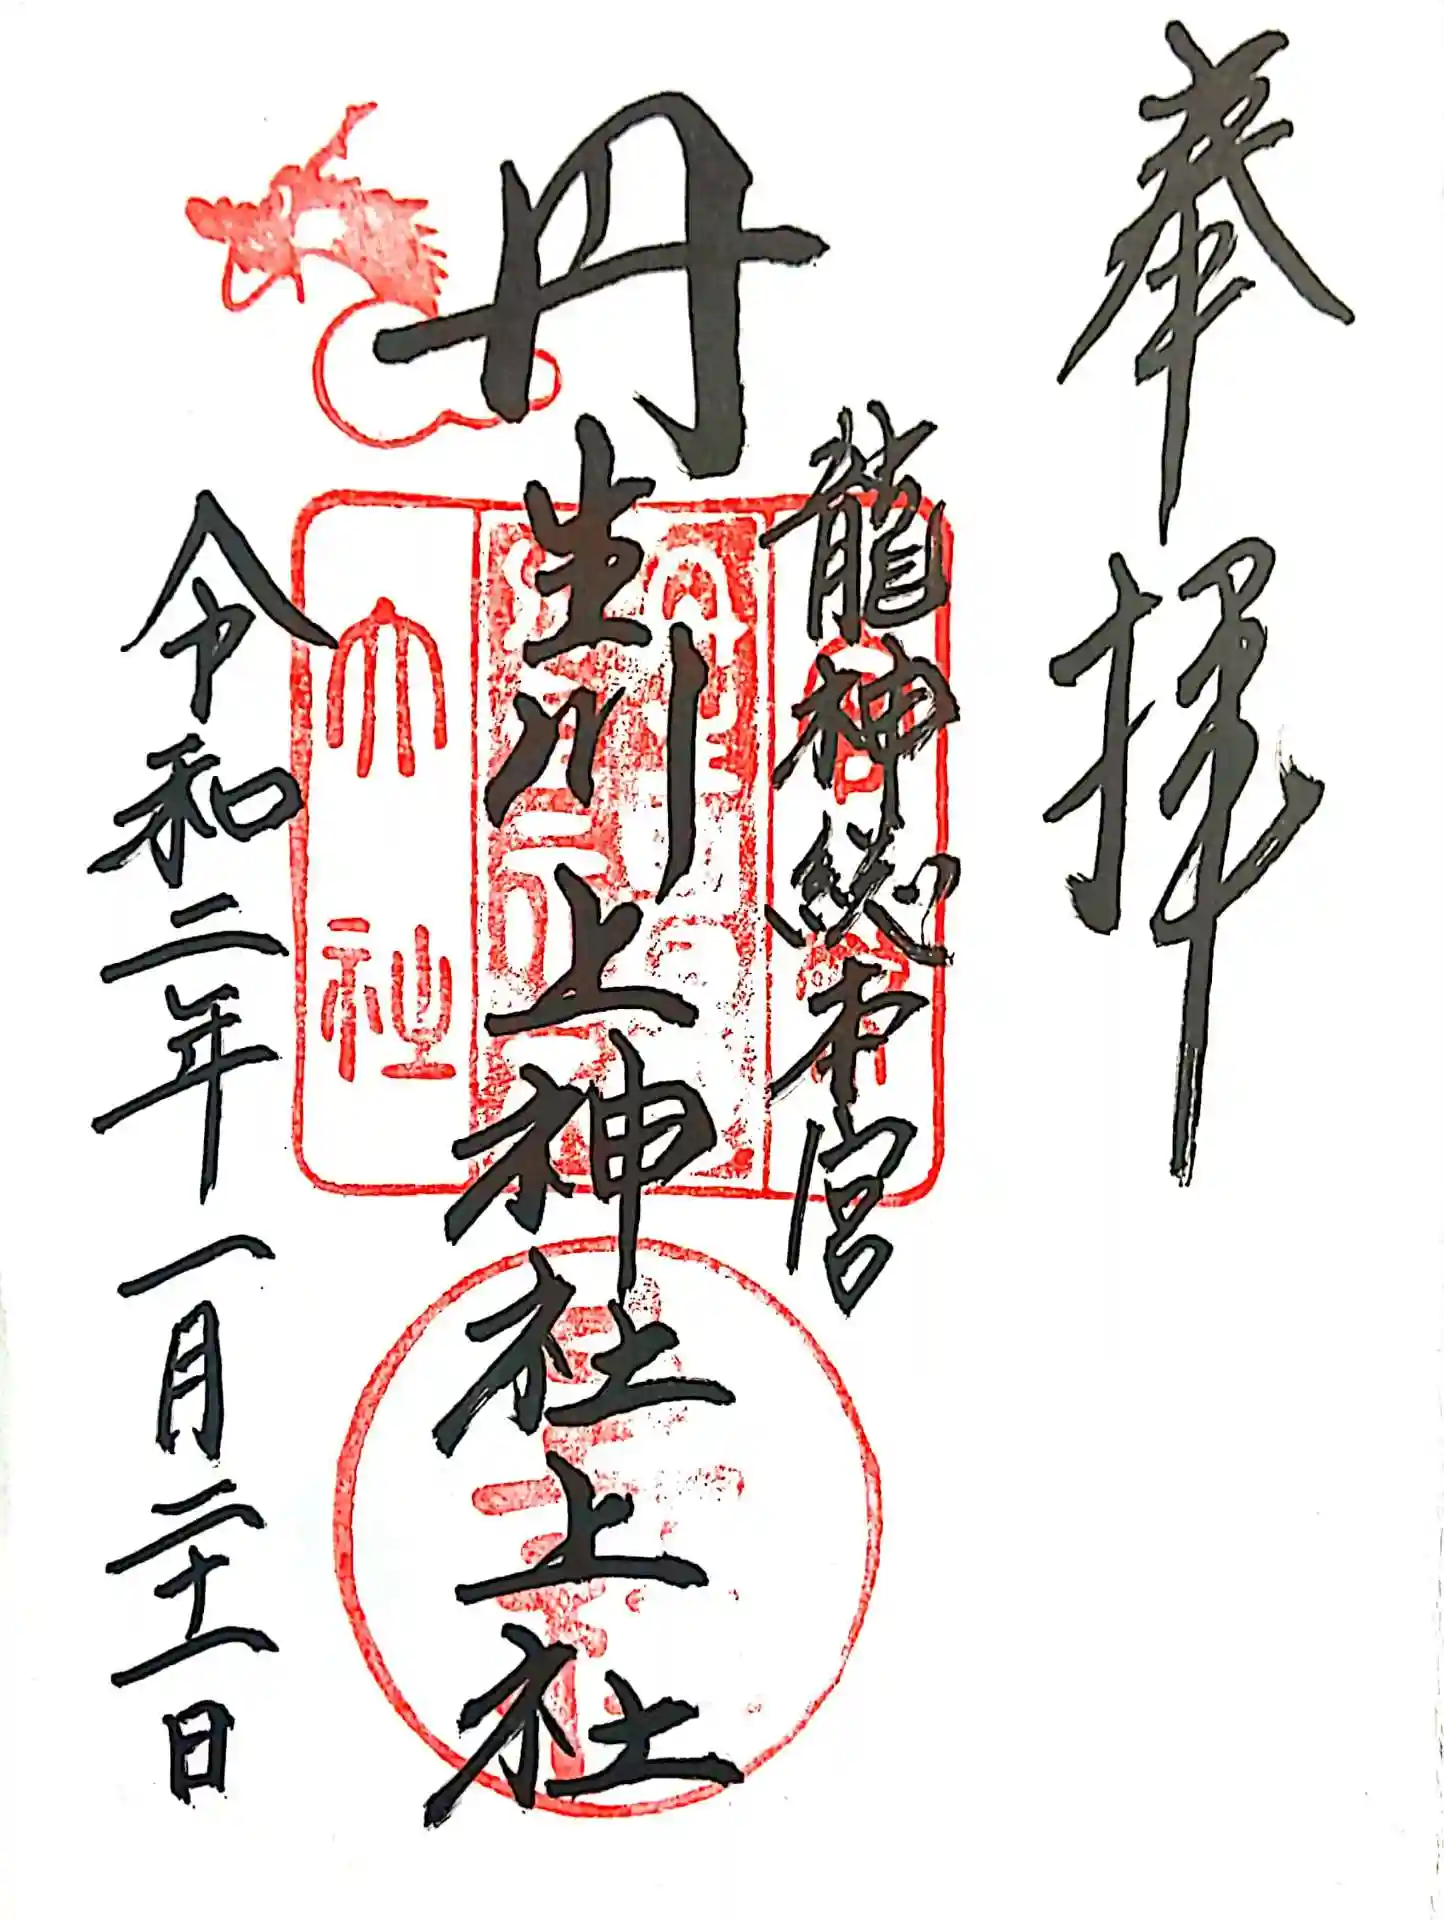 奉拝
龍神総本宮
丹生川上神社上社
令和二年一月二十一日
大社